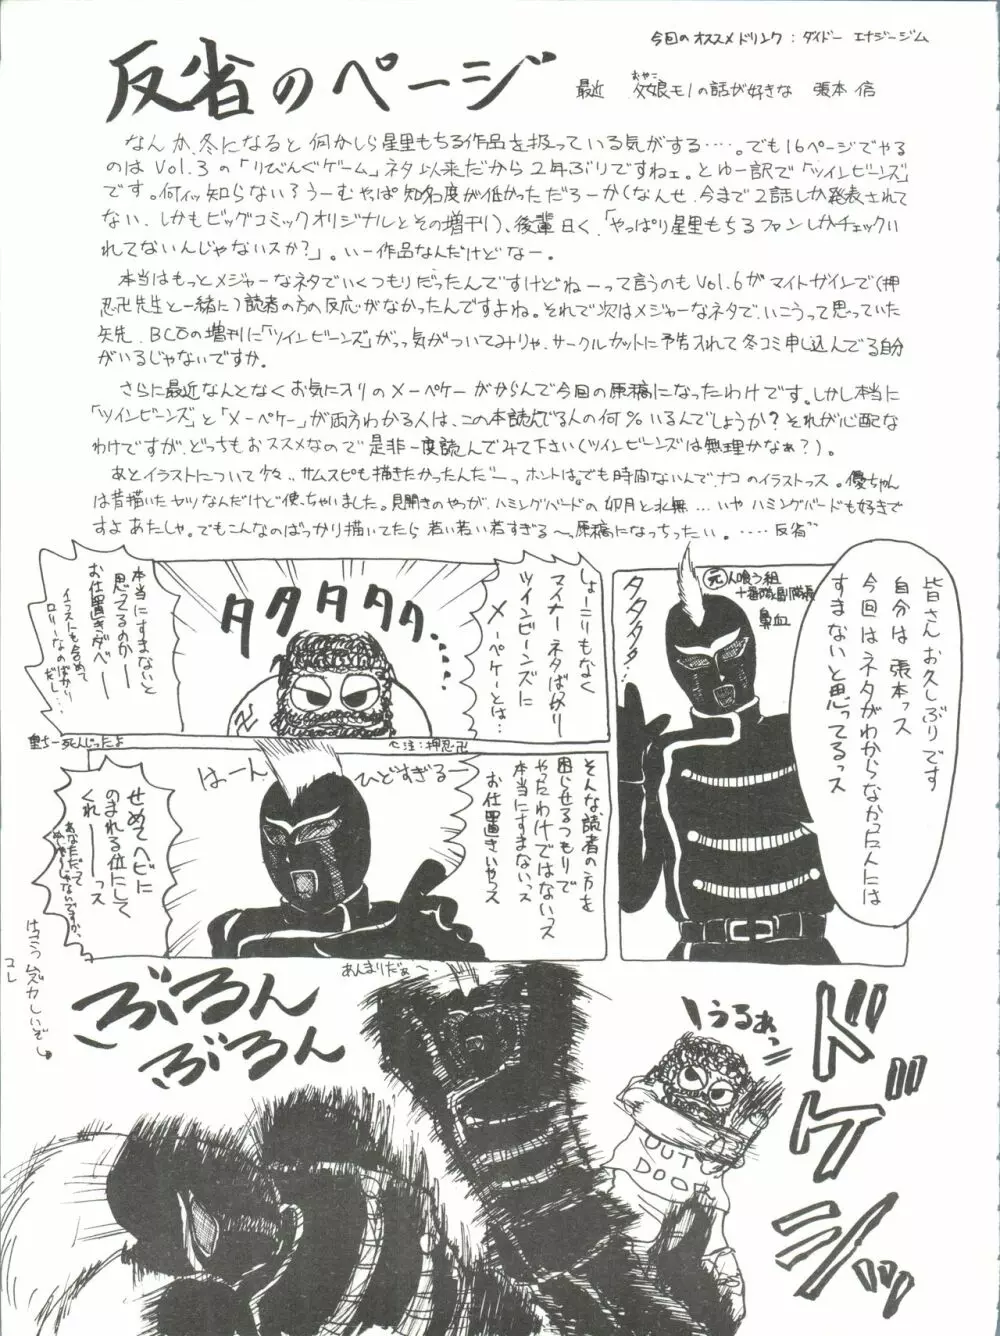 今回のオススメドリンク:ダイドー エナジージム
反省のページ
最近 父娘モノの話が好きな 張本 信
おやこ
なんか、冬になると何かしら星里もちる作品を扱っている気がする……。でも16ページでやる
のはVol.3の「りびんぐゲーム」ネタ以来だから2年ぶりですねェ。とゆー訳で「ツインビーンズ」
です。何ィッ知らない?うーむやっぱ知名度が低かっただろーか(なんせ、今まで2話しか発表されて
ない、しかもビッグコミックオリジナルとその増刊!)、後輩曰く、「やっぱり星里もちるファンしかチェックい
れてないんじゃないスか?」。いー作品なんだけどなー。
本当はもっとメジャーなネタでいくつもりだったんですけどねーって言うのもVol.6がマイトガインで(押
忍卍先生と一緒に)読者の方の反応がなかったんですよね。それで次はメジャーなネタで、いこうって思っていた
矢先、BCOの増刊に「ツインビーンズ」がっっ気がついてみりゃ、サークルカットに予告されて冬コミ申し込んでる自分
がいるじゃないですか。
さらに最近なんとなくお気に入りのメーペケーがからんで今回の原稿になったわけです。しかし本当に
「ツインビーンズ」と「メーペケー」が両方わかる人は、この本読んでる人の何%いるんでしょうか?それが心配な
わけですが、どっちもおススメなので是非一度読んでみて下さい(ツインビーンズは無理かなぁ?)。
あとイラストについて少々、サムスピも描きたかったんだーっホントは。でも時間ないんで、ナコのイラストっス。優ちゃん
は昔描いたヤツなんだけど使っちゃいました。見開きのやつが、ハミングバードの卯月と水無…いや ハミングバードも好きで
すよあたしゃ。でもこんなのばっかり描いてたら 若い若い若すぎる〜っ原稿になっちったい。……反省
皆さんお久しぶりです
自分は張本っス
今回はネタがわからなかった人には
すまないと思ってるっス
元 人喰う組
十番隊副隊長
鼻血
タタタタ
しょーこりもなく
マイナーネタばかり
ツインビーンズに
メーペケーとは…
タタタタタ、
卍
本当にすまないと
思ってるのかーー
お仕置きダベー
イラストも含めて
ロリーなのばかり
だし…
←注:押忍卍
そんな、読者の方を
困らせるつもりで
やったわけではないっス
本当にすまないっス
お仕置きいやっス
ひどすぎるー
はーん
せめてヘビに
のまれる位にして
くれーーっス
コレ
あんまりだぁ〜
ぶるん
ぶるん
うるぁっ
OUT
DOOR
ドゲシッ